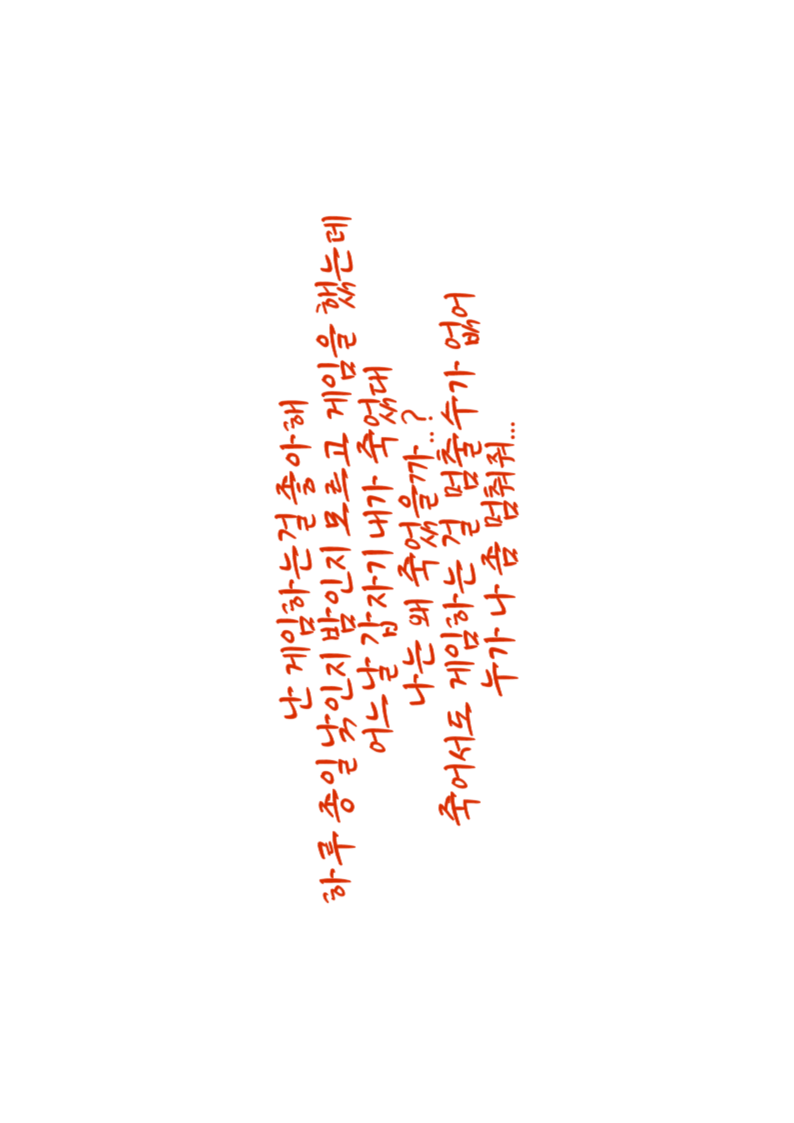 난 게임하는걸 좋아해
하루 종일 낮인지 밤인지 모르고 게임을 했는데
어느날 갑자기 내가 죽었대
나는 왜 죽었을까..?
죽어서도 게임하는 걸 멈출수가 없어
누가 나 좀 멈춰줘...